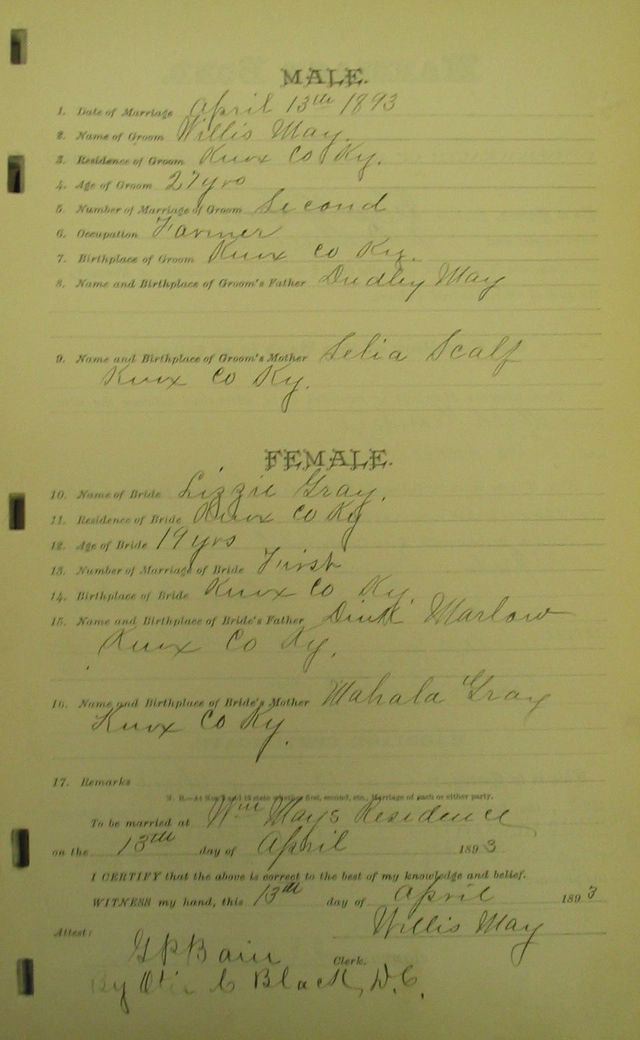 MALE.
1. Date of Marriage April 13th 1893
2. Name of Groom Willis May.
3. Residence of Groom Knox Co Ky.
4. Age of Groom 27 yrs
5. Number of Marriage of Groom Second
6. Occupation Farmer
7. Birthplace of Groom Knox Co Ky.
8. Name and Birthplace of Groom's Father Dudley May
9. Name and Birthplace of Groom's Mother Selia Scalf
Knox Co Ky.
FEMALE.
10. Name of Bride Lizzie Gray.
11. Residence of Bride Knox Co Ky
12. Age of Bride 19 yrs
13. Number of Marriage of Bride First
14. Birthplace of Bride Knox Co Ky.
15. Name and Birthplace of Bride's Father Dink Marlow
Knox Co Ky.
16. Name and Birthplace of Bride's Mother Mahala Gray
Knox Co Ky.
17. Remarks
N. B.—At Nos. 5 and 13 state whether first, second, etc., Marriage of each or either party.
To be married at Wm Mays Residence
on the 13th day of April 1893
I CERTIFY that the above is correct to the best of my knowledge and belief.
WITNESS my hand, this 13th day of April 1893
Willis May
Attest:
G P Bain Clerk.
By C Black, D.C.